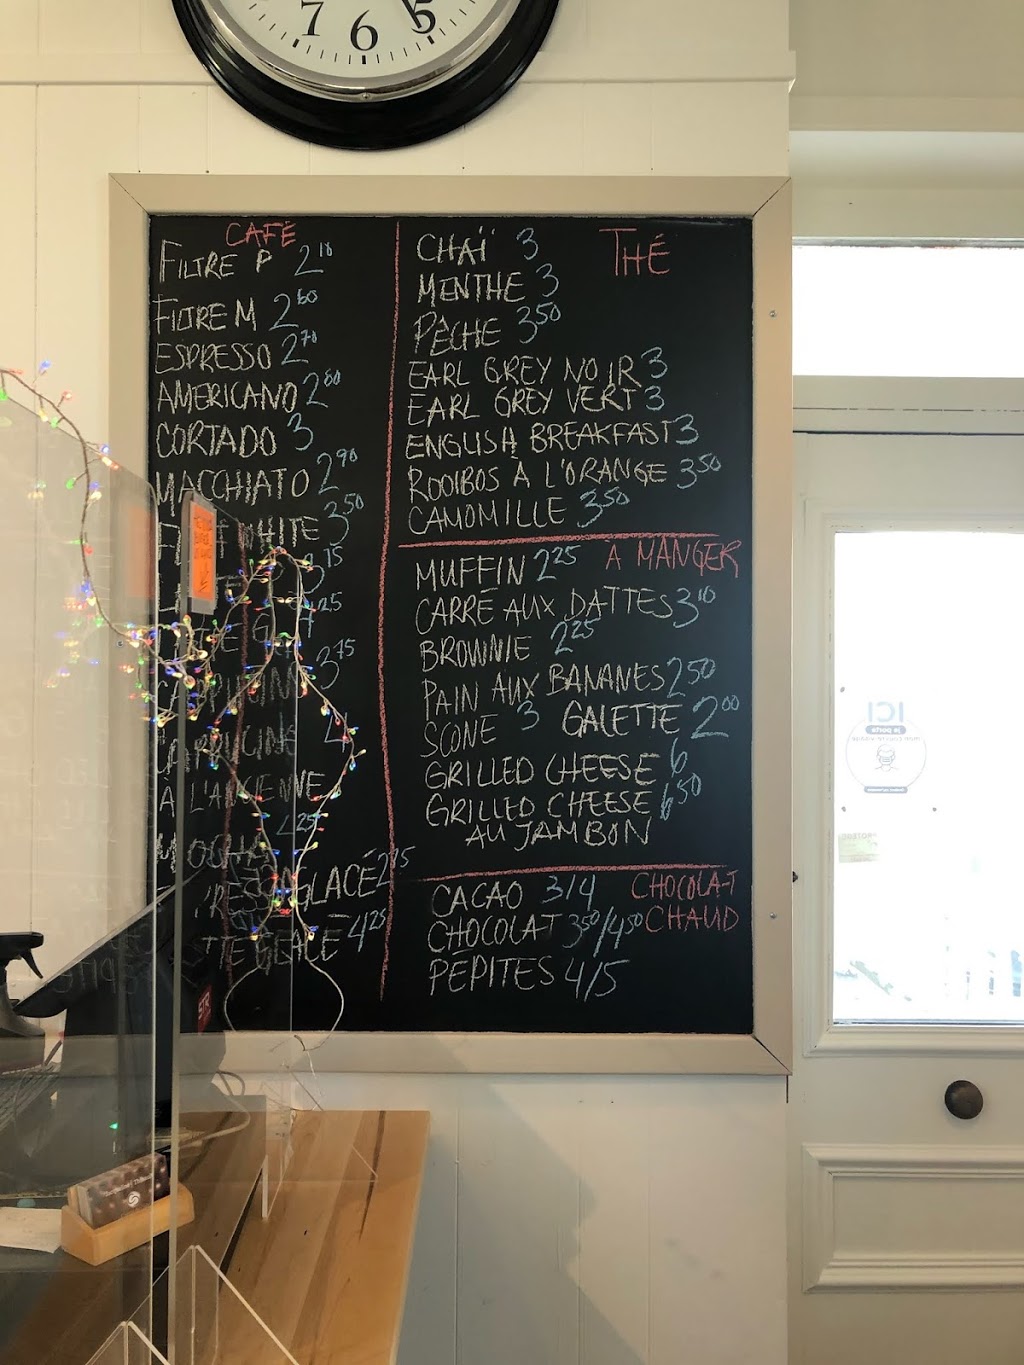 7 6 5
CAFÉ
FILTRE P 2 10
FILTRE M 2 60
ESPRESSO 2 70
AMERICANO 2 80
CORTADO 3
MACCHIATO 2 90
WHITE 3 50
3 75
L'ANCIENNE
GLACÉ 2 75
GLACÉ 4 25
THÉ
CHAÏ 3
MENTHE 3
PÊCHE 3 50
EARL GREY NOIR 3
EARL GREY VERT 3
ENGLISH BREAKFAST 3
ROOIBOS À L'ORANGE 3 50
CAMOMILLE 3 50
A MANGER
MUFFIN 2 25
CARRÉ AUX DATTES 3 10
BROWNIE 2 25
PAIN AUX BANANES 2 50
SCONE 3 GALETTE 2 00
GRILLED CHEESE 6
GRILLED CHEESE 6 50
AU JAMBON
CHOCOLAT
CHAUD
CACAO 3/4
CHOCOLAT 3 50/4 50
PÉPITES 4/5
ICI
je porte